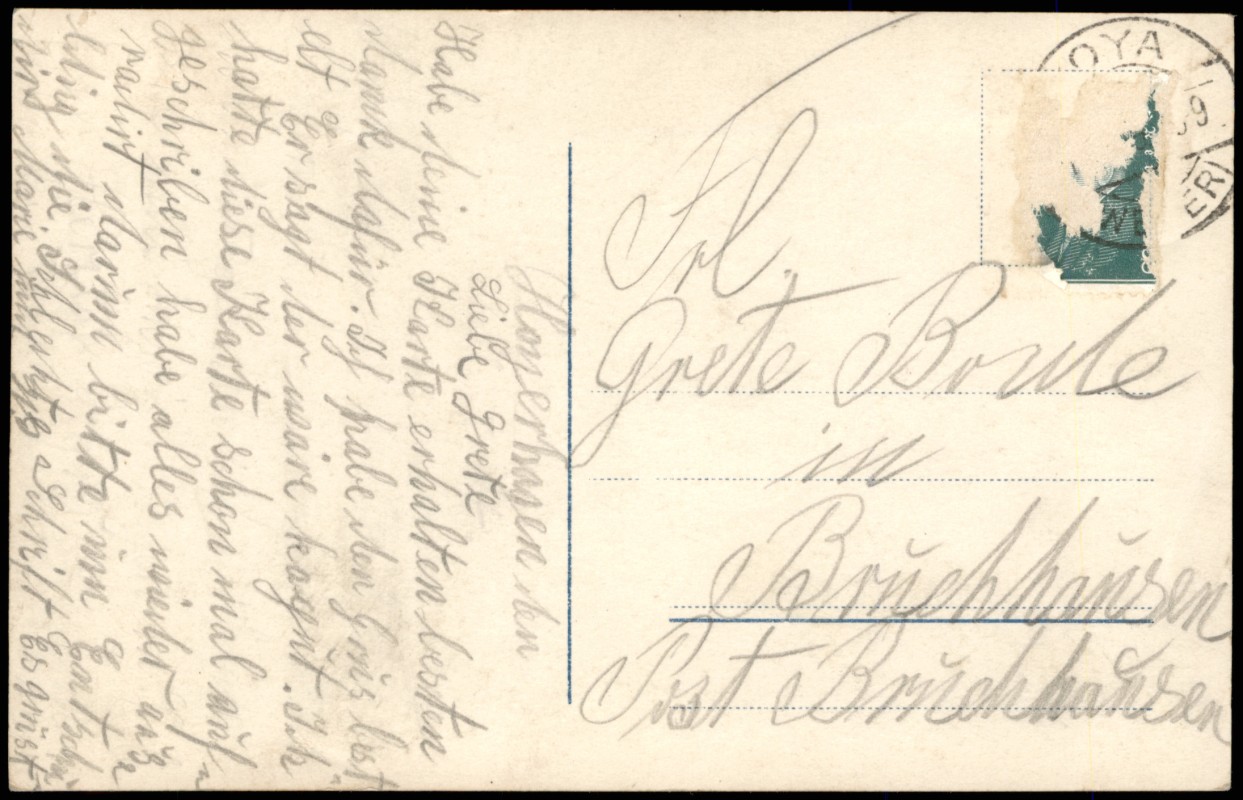 OYA
Frl.
Grete Boule
in
Bruchhausen
Post Bruchhausen
Hoyerhagen den
Liebe Grete
Habe deine Karte erhalten besten
Dank dafür. Ich habe den Grus
Er sagt der wäre
hatte diese Karte schon mal auf
geschriben habe alles wieder aus
radirt
Darum bitte um Entschu
ldig die Schrift Es grüst